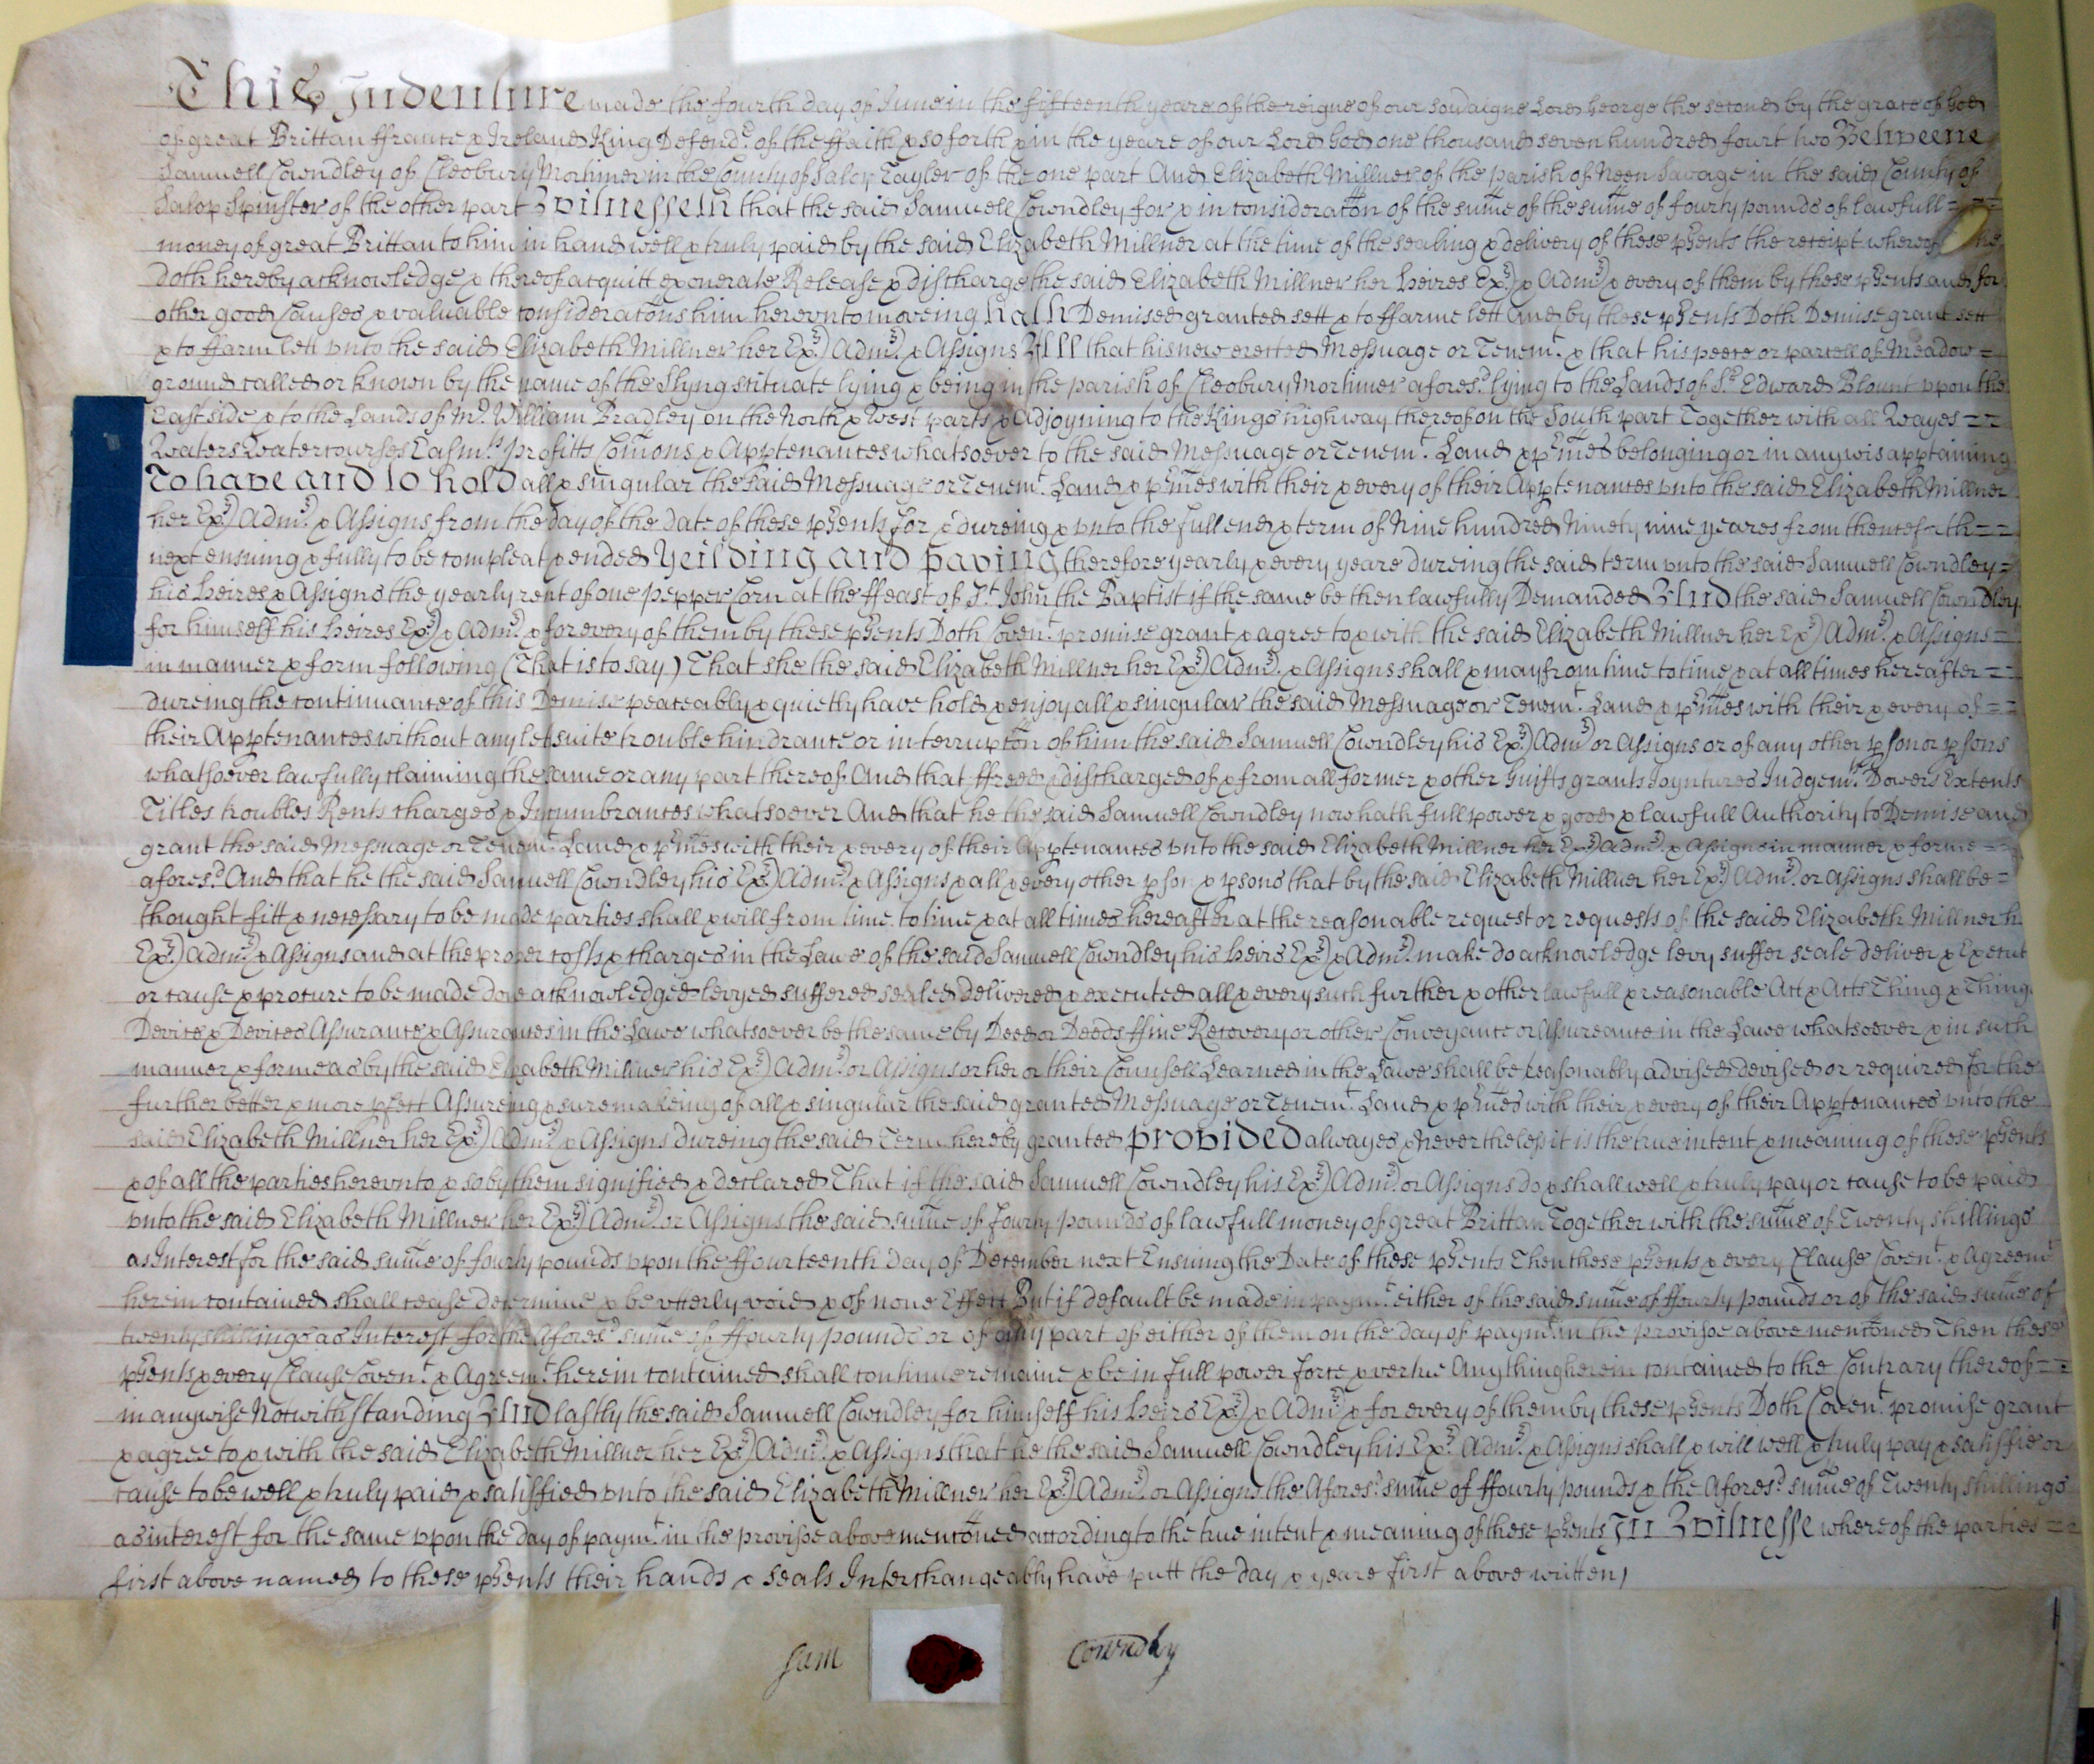 This Indenture made the fourth day of June in the fifteenth yeare of the reigne of our Sovraigne Lord George the second by the grace of God
of great Brittan ffrance & Ireland King Defendr. of the ffaith & so forth & in the yeare of our Lord God one thousand seven hundred fourt two Betweene
Samuell Cowndley of Cleobury Mortimer in the County of Salop Tayler of the one part And Elizabeth Millner of the parish of Neen Savage in the said County of
Salop Spinster of the other part Witnesseth that the said Samuell Cowndley for & in consideraton of the sume of the sume of fourty pounds of lawfull
money of great Brittan to him in hand well & truly paid by the said Elizabeth Millner at the time of the sealing & delivery of these pssents the receipt whereof he
doth hereby acknowledge & thereof acquitt exonerate Release & discharge the said Elizabeth Millner her heires Exrs) & Admrs) & every of them by these pssents and for
other good Causes & valuable consideratons him herevnto moveing hath Demised granted sett & to ffarme lett And by these pssents Doth Demise grant sett
& to ffarm lett vnto the said Elizabeth Millner her Exrs) Admrs) & Assigns All that his new erected Messuage or Tenemt. & that his peece or parcell of Meadow =
ground called or known by the name of the Slyng scituate lying & being in the parish of Cleobury Mortimer aforesd. lying to the Lands of Sr. Edward Blount vpon the
East side & to the Lands of Mr. William Bradley on the North & West parts & Adjoyning to the Kings highway thereof on the South part Together with all Wayes = =
Waters Watercourses Easmts. profitts Comons & Apptenances whatsoever to the said Messuage or Tenemt. Land & pmes belonging or in anywis apptaining
To have and to hold all & singular the said Messuage or Tenemt. Land & pmes with their & every of their Apptenances vnto the said Elizabeth Millner
her Exrs) Admrs) & Assigns from the day of the date of these pssents for & dureing & vnto the full end & term of Nine hundred Ninety nine yeares from thenceforth = =
next ensuing & fully to be compleat & ended Yeilding and Paying therefore yearly & every yeare dureing the said term vnto the said Samuell Cowndley =
his heires & Assigns the yearly rent of one pepper Corn at the ffeast of St. John the Baptist if the same be then lawfully Demanded And the said Samuell Cowndley
for himself his heires Exrs) & Admrs) & for every of them by these pssents Doth Covent. promise grant & agree to & with the said Elizabeth Millner her Exrs) Admrs) & Assigns =
in manner & form following (That is to say) That she the said Elizabeth Millner her Exrs) Admrs) & Assigns shall & may from time to time & at all times hereafter = =
dureing the continuance of this Demise peaceably & quietly have hold & enjoy all & singular the said Messuage or Tenemt. Land & pmes with their & every of = =
their Apptenances without any let suite trouble hindrance or interrupton of him the said Samuell Cowndley his Exrs) Admrs) or Assigns or of any other pson or psons
whatsoever lawfully claiming the same or any part thereof And that ffreed & discharged of & from all former & other Guifts grants Joyntures Judgemts. Dowers Extents
Titles troubles Rents charges & Incumbrances whatsoever And that he the said Samuell Cowndley now hath full power & good & lawfull Authority to Demise and
grant the said Messuage or Tenemt. Land & pmes with their & every of their Apptenances vnto the said Elizabeth Millner her Exrs) Admrs) & Assigns in manner & forme = =
aforesd. And that he the said Samuell Cowndley his Exrs) Admrs) & Assigns & all & every other pson & psons that by the said Elizabeth Millner her Exrs) Admrs) or Assigns shall be =
thought fitt & necessary to be made parties shall & will from time to time & at all times hereafter at the reasonable request or requests of the said Elizabeth Millner
Exrs) Admrs) & Assigns and at the proper costs & charges in the Lawe of the said Samuell Cowndley his heirs Exrs) & Admrs) make do acknowledge levy suffer seale deliver & Execut
or cause & procure to be made done acknowledged levyed suffered sealed Delivered & executed all & every such further & other lawfull & reasonable Act & Acts Thing & Things
Device & Devices Assurance & Assurances in the Lawe whatsoever be the same by Deed or Deeds ffine Recovery or other Conveyance or Assureance in the Lawe whatsoever & in such
manner & forme as by the said Elizabeth Millner his Exrs) Admrs) or Assigns or her or their Counsell Learned in the Lawe shall be reasonably advised devised or required for the
further better & more pfect Assureing & sure makeing of all & singular the said granted Messuage or Tenemt. Land & pmes with their & every of their Apptenances vnto the
said Elizabeth Millner her Exrs) Admrs) & Assigns dureing the said Term hereby granted Provided alwayes & Nevertheless it is the true intent & meaning of these pssents
& of all the parties herevnto & so by them signified & declared That if the said Samuell Cowndley his Exrs) Admrs) or Assigns do & shall well & truly pay or cause to be paid
vnto the said Elizabeth Millner her Exrs) Admrs) or Assigns the said sume of fourty pounds of lawfull money of great Brittan Together with the sume of Twenty shillings
as Interest for the said sume of fourty pounds vpon the ffourteenth Day of December next Ensuing the Date of these pssents Then these pssents & every Clause Covent. & Agreemt.
herein contained shall cease determine & be vtterly void & of none Effect But if default be made in paymt. either of the said sume of ffourty pounds or of the said sume of
twenty shillings as Interest for the Aforesd. sume of ffourty pounds or of any part of either of them on the day of paymt. in the provisoe above mentoned Then these
pssents & every Clause Covent. & Agreemt. herein contained shall continue remaine & be in full power force & vertue Any thing herein contained to the Contrary thereof = =
in anywise Notwithstanding And lastly the said Samuell Cowndley for himself his heirs Exrs) & Admrs) & for every of them by these pssents Doth Covent. promise grant
& agree to & with the said Elizabeth Millner her Exrs) Admrs) & Assigns that he the said Samuell Cowndley his Exrs) Admrs) & Assigns shall & will well & truly pay & satisfie or
cause to be well & truly paid & satisffied vnto the said Elizabeth Millner her Exrs) Admrs) or Assigns the Aforesd. sume of ffourty pounds & the Aforesd. sume of Twenty shillings
as interest for the same vpon the day of paymt. in the provisoe above mentoned according to the true intent & meaning of these pssents In Witnesse whereof the parties = =
first above named to these pssents their hands & seals Interchangeably have putt the day & yeare first above written
Sam Cowndley